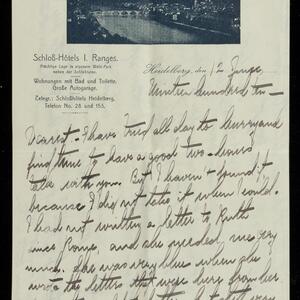 Schloß-Hôtels I. Ranges.
Prächtige Lage in eigenem Wald-Park
neben der Schloßruine.
Wohnungen mit Bad und Toilette.
Große Autogarage.
Telegr.: Schloßhôtels Heidelberg.
Telefon No. 28 und 153.
Heidelberg, den 12
hundred ten—
Dearest— I have tried all day to hurry and
find time to have a good two-hours
talk with you. But I haven't found it
because I did not take it when I could.
I had not written a letter to Ruth
since Bonn, and she needed me very
much. She was very blue when she
wrote the letters that were here from her